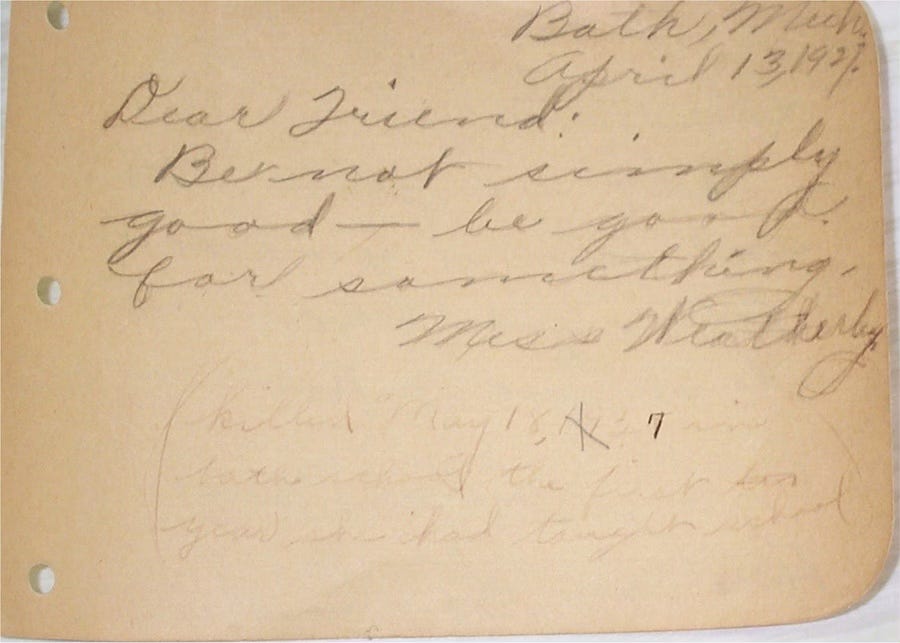 Bath, Mich.
April 13, 1927.
Dear Friend:
Be not simply
good — be good
for something.
Miss Weatherby.
(killed May 18, 7 in
bath school the first
year she had taught school)